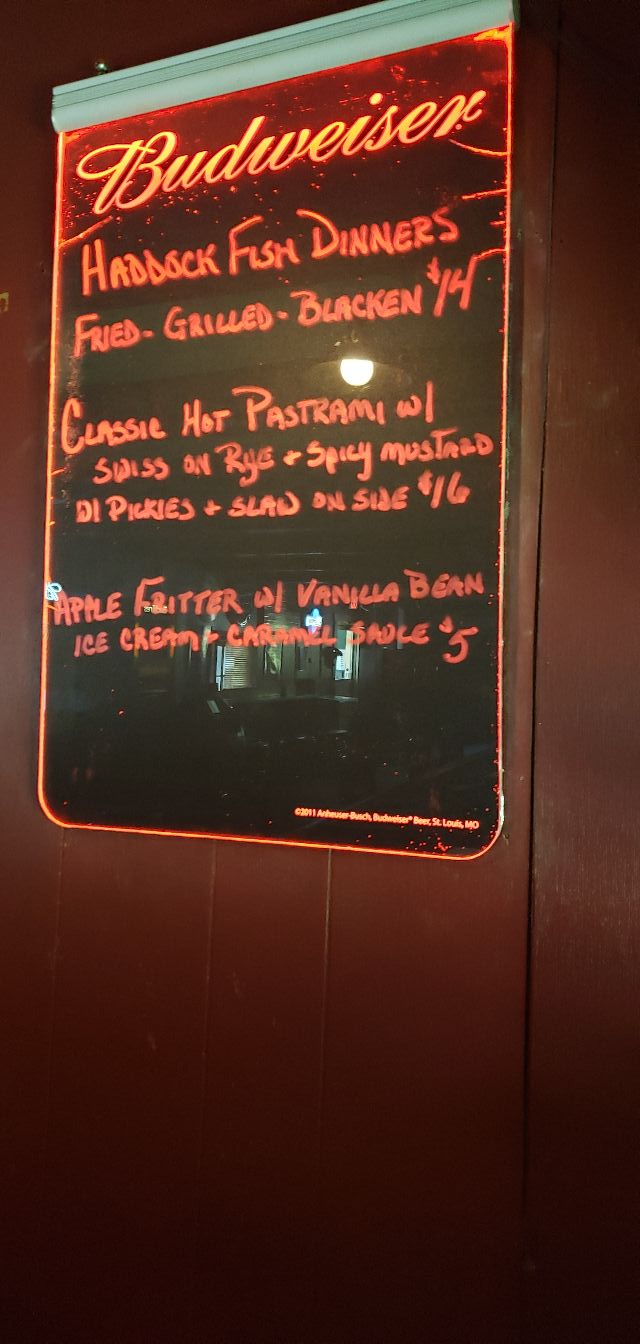 Budweiser
HADDOCK FISH DINNERS
FRIED - GRILLED - BLACKEN $14
CLASSIC HOT PASTRAMI W/
SWISS ON RYE + SPICY MUSTARD
W/ PICKLES + SLAW ON SIDE $16
APPLE FRITTER W/ VANILLA BEAN
ICE CREAM + CARAMEL SAUCE $5
©2011 Anheuser-Busch, Budweiser® Beer, St. Louis, MO